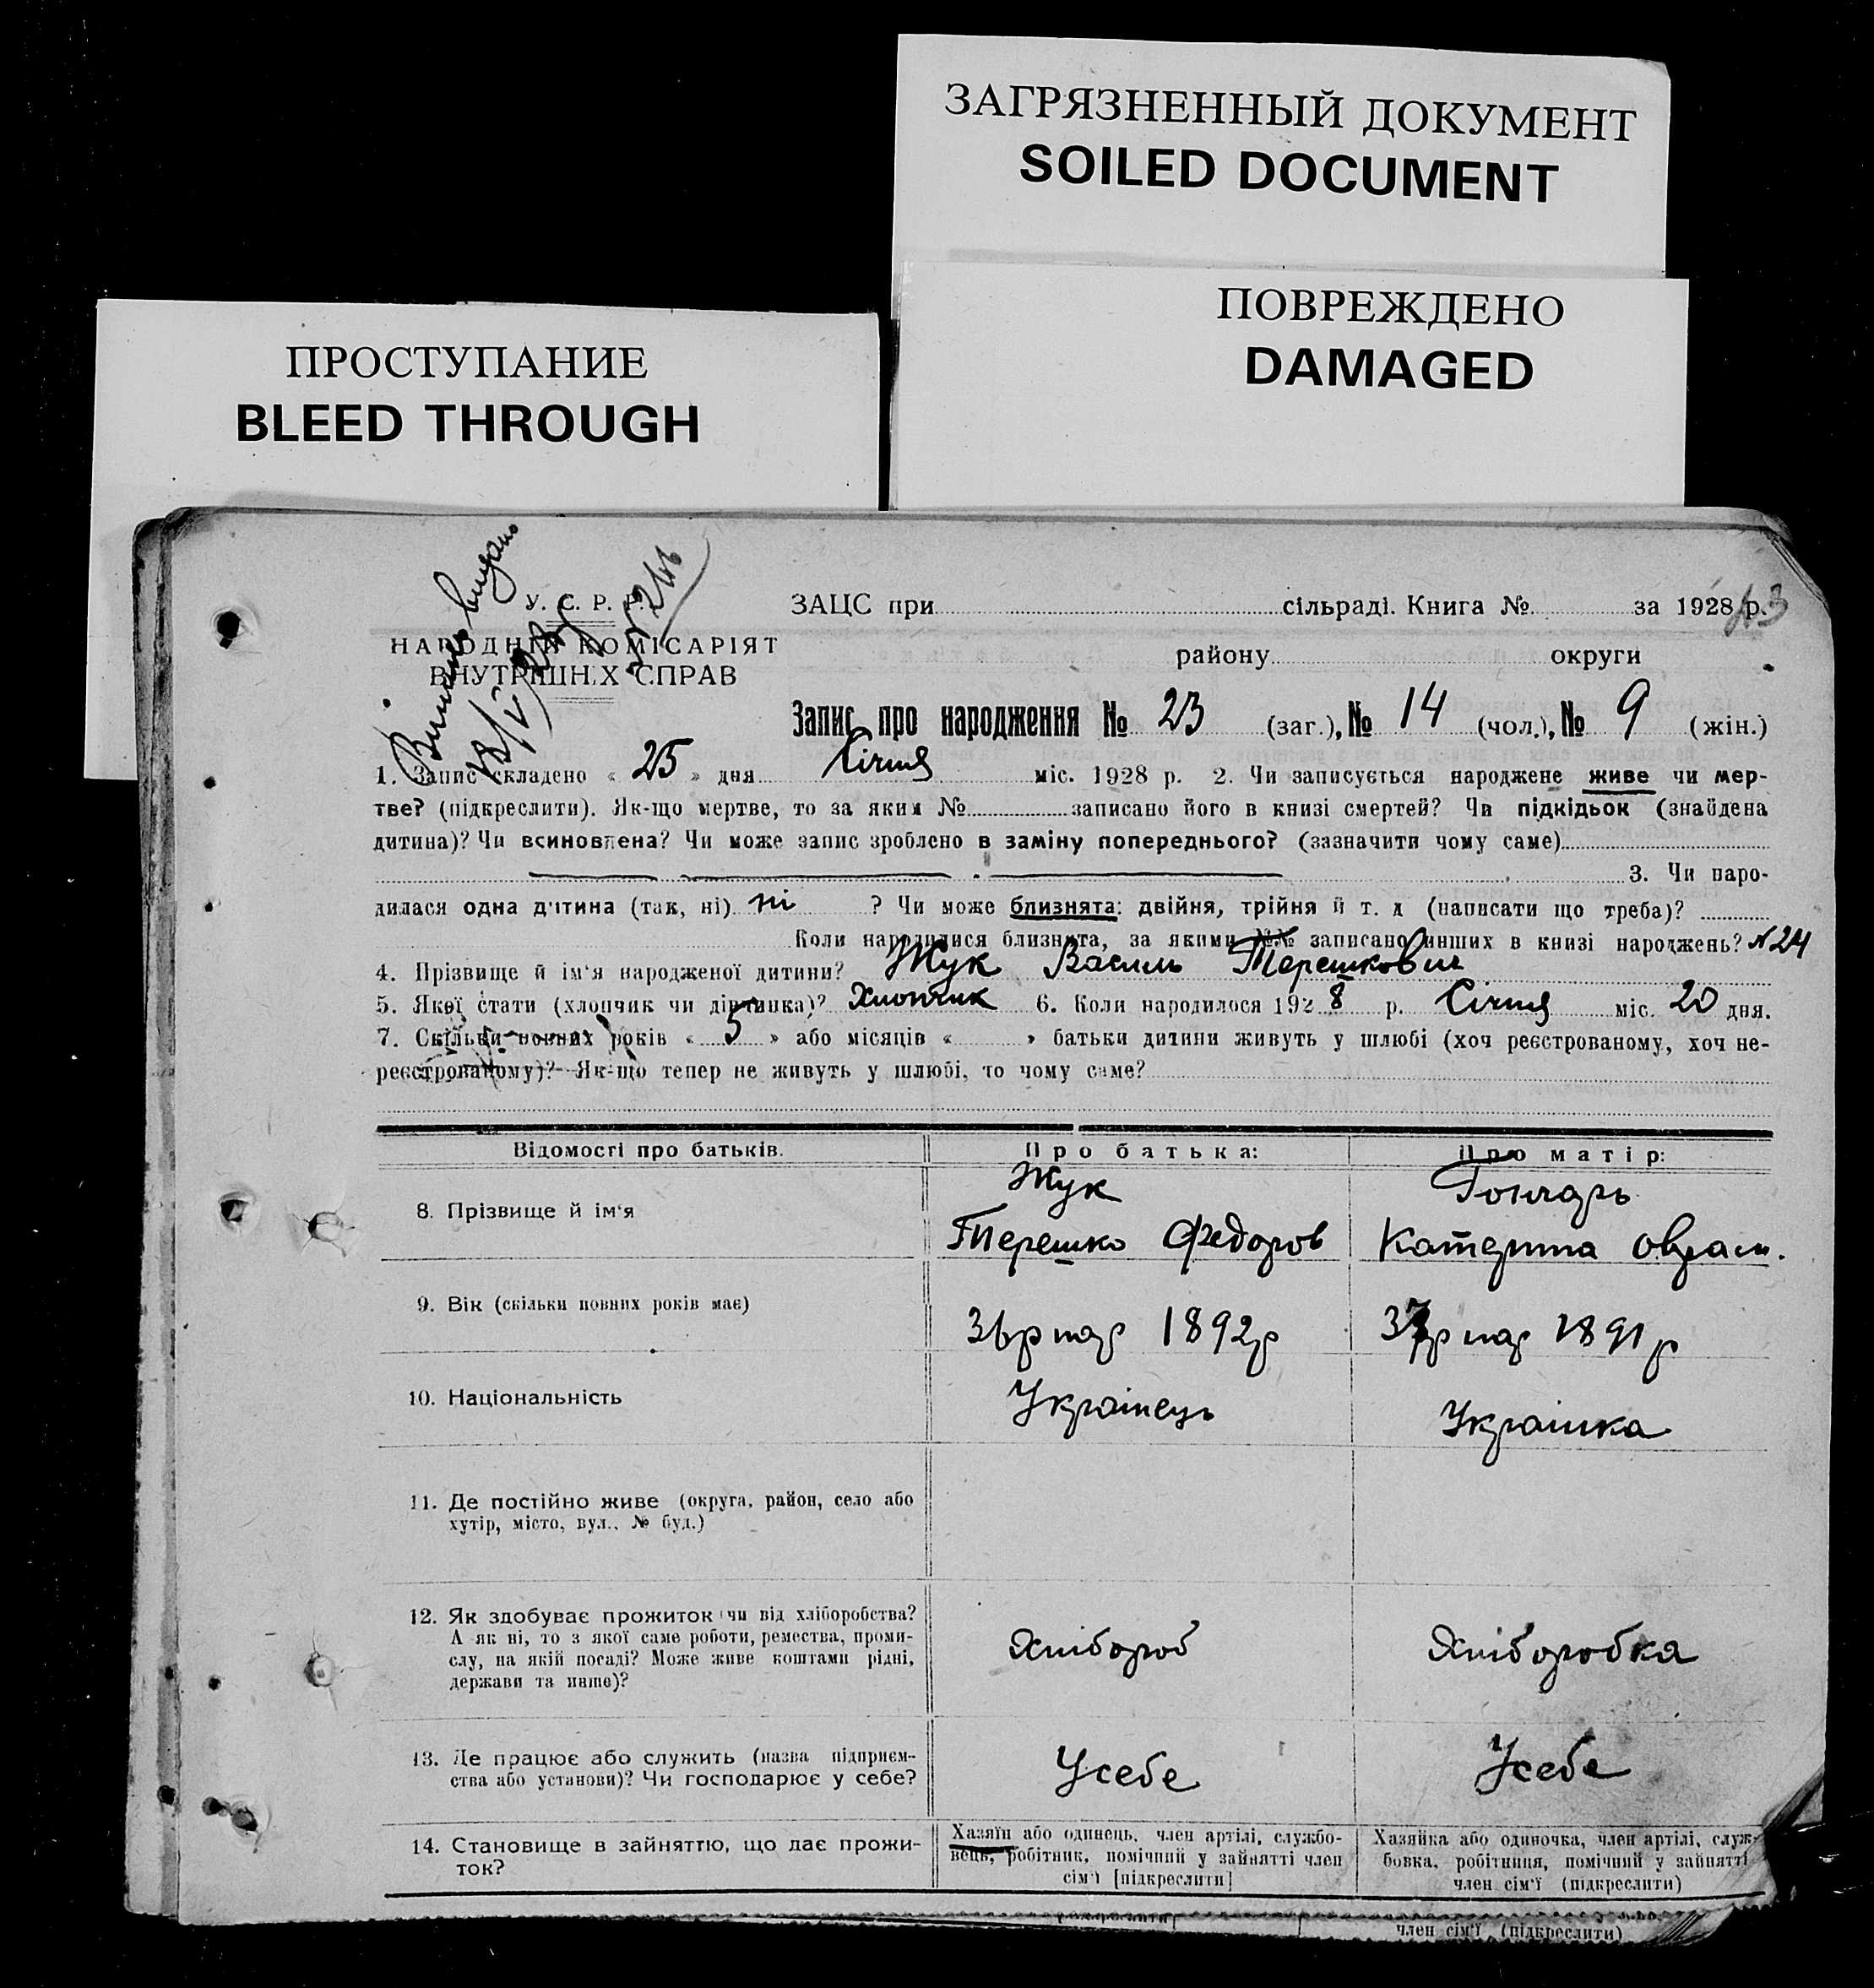 ЗАГРЯЗНЕННЫЙ ДОКУМЕНТ
SOILED DOCUMENT
ПОВРЕЖДЕНО
DAMAGED
ПРОСТУПАНИЕ
BLEED THROUGH
У. С. Р. Р.
НАРОДНІЙ КОМІСАРІЯТ
ВНУТРІШНІХ СПРАВ
видано
ЗАЦС при сільраді. Книга № за 1928 р.
району округи
Запис про народження № 23 (заг.), № 14 (чол.), № 9 (жін.)
1. Запис складено « 25 » дня Січня міс. 1928 р. 2. Чи записується народжене живе чи мер-
тве? (підкреслити). Як-що мертве, то за яким № записано його в книзі смертей? Чи підкідьок (знайдена
дитина)? Чи всиновлена? Чи може запис зроблено в заміну попереднього? (зазначити чому саме)
3. Чи наро-
дилася одна дитина (так, ні) ні ? Чи може близнята: двійня, трійня й т. д (написати що треба)?
Коли народилися близнята, за якими №№ записано инших в книзі народжень? № 24
4. Прізвище й ім'я народженої дитини? Жук Василь Терешкович
5. Якої стати (хлопчик чи дівчинка)? Хлопчик 6. Коли народилося 1928 р. Січня міс. 20 дня.
7. Скільки повних років « 5 » або місяців « » батьки дитини живуть у шлюбі (хоч реєстрованому, хоч не-
реєстрованому)? Як-що тепер не живуть у шлюбі, то чому саме?
Відомості про батьків. Про батька: Про матір:
Жук Гончарь
8. Прізвище й ім'я
Терешко Федоров Катерина Оврам.
9. Вік (скільки повних років має)
36 р нар 1892 р 37 р нар 1891 р
10. Національність Українець Українка
11. Де постійно живе (округа, район, село або
хутір, місто, вул., № буд.)
12. Як здобуває прожиток чи від хліборобства?
А як ні, то з якої саме роботи, ремества, проми-
слу, на якій посаді? Може живе коштами рідні,
держави та инше)?
Хлібороб Хліборобка
13. Де працює або служить (назва підприєм-
ства або установи)? Чи господарює у себе?
Усебе Усебе
14. Становище в зайняттю, що дає прожи-
ток?
Хазяїн або одинець, член артілі, службо-
вець, робітник, помічний у зайнятті член
сім'ї [підкреслити]
Хазяйка або одиночка, член артілі, служ-
бовка, робітниця, помічний у зайнятті
член сім'ї (підкреслити)
член сім'ї (підкреслити)